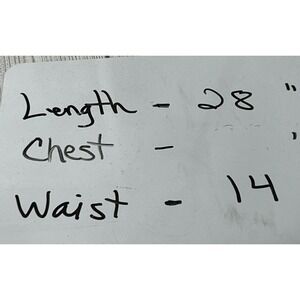 Length - 28 "
Chest - '
Waist - 14